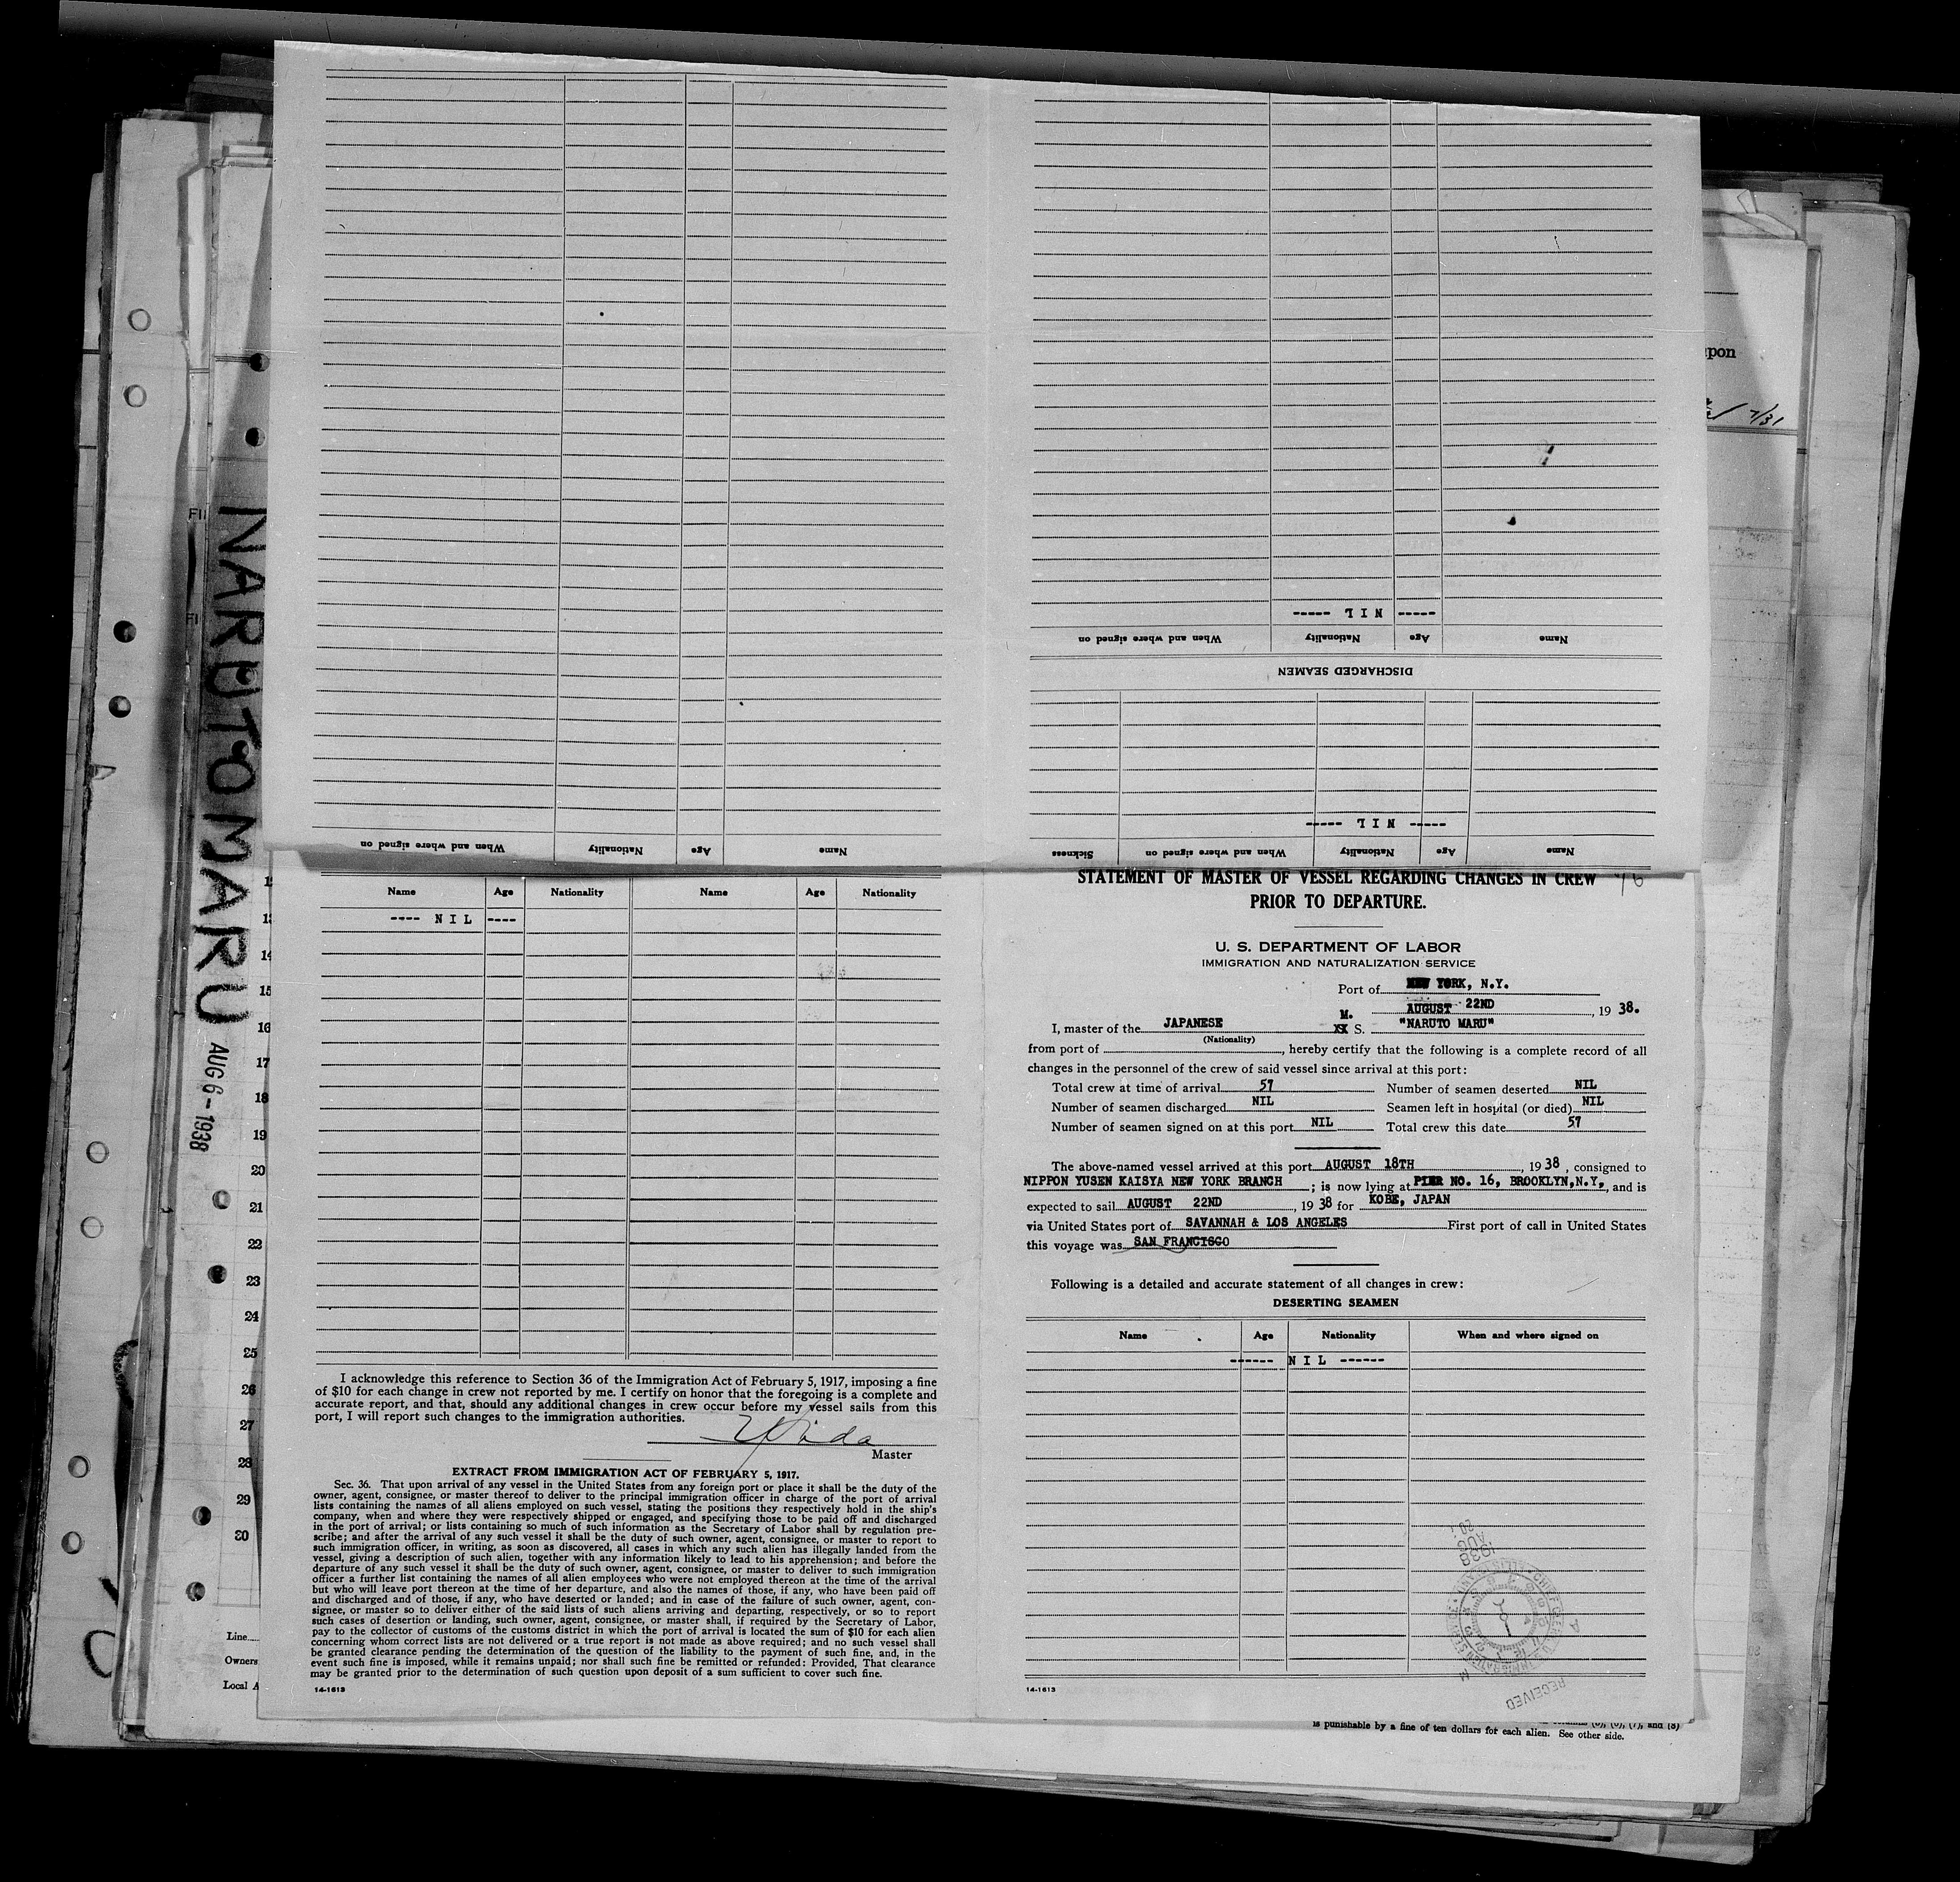 NARUTO MARU AUG 6 - 1938
pon
7/31
----- NIL -----
When and where signed on Nationality Age Name
DISCHARGED SEAMEN
----- NIL -----
Sickness When and where signed on Nationality Age Name
When and where signed on Nationality Age Name
Name Age Nationality Name Age Nationality
---- NIL ----
14
15
16
17
18
19
20
21
22
23
24
25
26
27
28
29
30
Line
Owners
Local A
I acknowledge this reference to Section 36 of the Immigration Act of February 5, 1917, imposing a fine
of $10 for each change in crew not reported by me. I certify on honor that the foregoing is a complete and
accurate report, and that, should any additional changes in crew occur before my vessel sails from this
port, I will report such changes to the immigration authorities.
Master
EXTRACT FROM IMMIGRATION ACT OF FEBRUARY 5, 1917.
Sec. 36. That upon arrival of any vessel in the United States from any foreign port or place it shall be the duty of the
owner, agent, consignee, or master thereof to deliver to the principal immigration officer in charge of the port of arrival
lists containing the names of all aliens employed on such vessel, stating the positions they respectively hold in the ship's
company, when and where they were respectively shipped or engaged, and specifying those to be paid off and discharged
in the port of arrival; or lists containing so much of such information as the Secretary of Labor shall by regulation pre-
scribe; and after the arrival of any such vessel it shall be the duty of such owner, agent, consignee, or master to report to
such immigration officer, in writing, as soon as discovered, all cases in which any such alien has illegally landed from the
vessel, giving a description of such alien, together with any information likely to lead to his apprehension; and before the
departure of any such vessel it shall be the duty of such owner, agent, consignee, or master to deliver to such immigration
officer a further list containing the names of all alien employees who were not employed thereon at the time of the arrival
but who will leave port thereon at the time of her departure, and also the names of those, if any, who have been paid off
and discharged and of those, if any, who have deserted or landed; and in case of the failure of such owner, agent, con-
signee, or master so to deliver either of the said lists of such aliens arriving and departing, respectively, or so to report
such cases of desertion or landing, such owner, agent, consignee, or master shall, if required by the Secretary of Labor,
pay to the collector of customs of the customs district in which the port of arrival is located the sum of $10 for each alien
concerning whom correct lists are not delivered or a true report is not made as above required; and no such vessel shall
be granted clearance pending the determination of the question of the liability to the payment of such fine, and, in the
event such fine is imposed, while it remains unpaid; nor shall such fine be remitted or refunded: Provided, That clearance
may be granted prior to the determination of such question upon deposit of a sum sufficient to cover such fine.
14-1613
STATEMENT OF MASTER OF VESSEL REGARDING CHANGES IN CREW
PRIOR TO DEPARTURE.
U. S. DEPARTMENT OF LABOR
IMMIGRATION AND NATURALIZATION SERVICE
Port of NEW YORK, N.Y.
AUGUST 22ND, 1938.
I, master of the JAPANESE M. XX S. "NARUTO MARU"
(Nationality)
from port of, hereby certify that the following is a complete record of all
changes in the personnel of the crew of said vessel since arrival at this port:
Total crew at time of arrival 57 Number of seamen deserted NIL
Number of seamen discharged NIL Seamen left in hospital (or died) NIL
Number of seamen signed on at this port NIL Total crew this date 57
The above-named vessel arrived at this port AUGUST 18TH, 1938, consigned to
NIPPON YUSEN KAISYA NEW YORK BRANCH; is now lying at PIER NO. 16, BROOKLYN, N.Y., and is
expected to sail AUGUST 22ND, 1938 for KOBE, JAPAN
via United States port of SAVANNAH & LOS ANGELES First port of call in United States
this voyage was SAN FRANCISCO
Following is a detailed and accurate statement of all changes in crew:
DESERTING SEAMEN
Name Age Nationality When and where signed on
------ NIL ------
1938
AUG
RECEIVED
14-1613
is punishable by a fine of ten dollars for each alien. See other side.